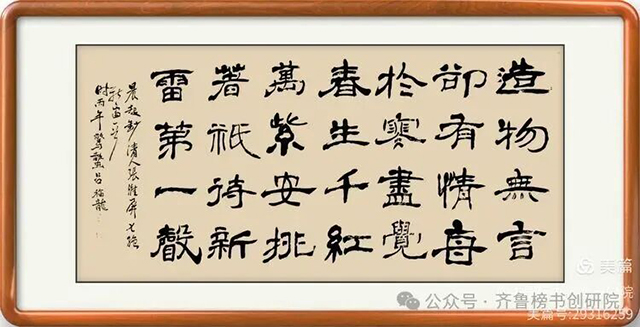 造物無言
卻有情每
於寒盡覺
春生千紅
萬紫安排
著祇待新
雷第一聲
晨起鈔清人張維屏七絶
時丙午驚蟄呂龍
美篇
公众号·齐鲁榜书创研院
美篇号:29316299